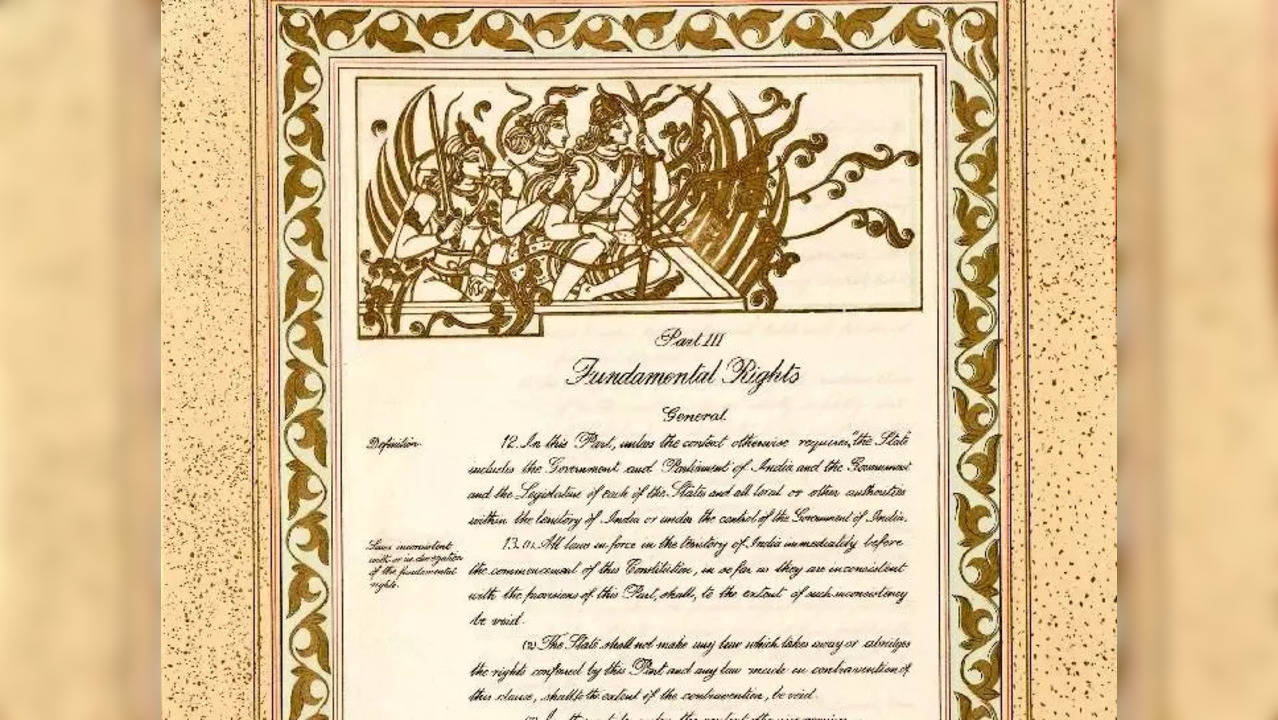 Part III
Fundamental Rights
General
Definition.
12. In this Part, unless the context otherwise requires, "the State"
includes the Government and Parliament of India and the Government
and the Legislature of each of the States and all local or other authorities
within the territory of India or under the control of the Government of India.
Laws inconsistent
with or in derogation
of the fundamental
rights.
13. (1) All laws in force in the territory of India immediately before
the commencement of this Constitution, in so far as they are inconsistent
with the provisions of this Part, shall, to the extent of such inconsistency
be void.
(2) The State shall not make any law which takes away or abridges
the rights conferred by this Part and any law made in contravention of
this clause, shall to the extent of the contravention, be void.